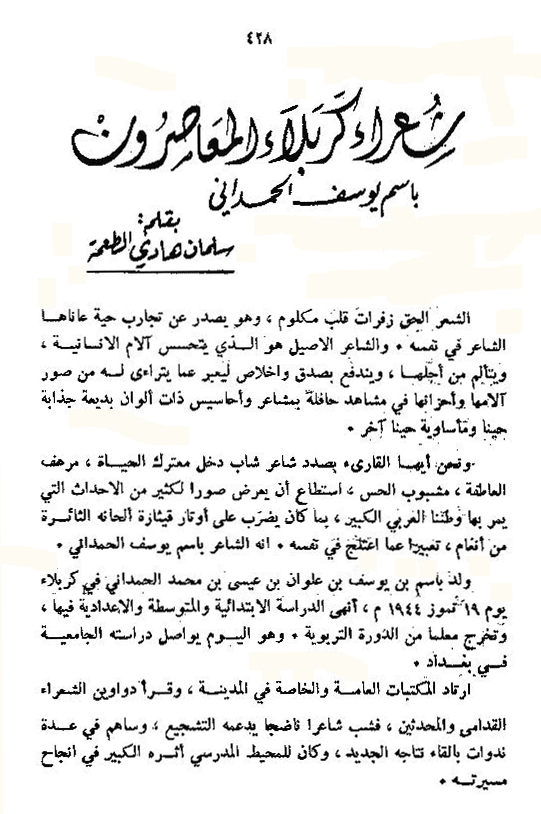 ٤٢٨
شُعراء كَربَلاَء المعَاصِرُونْ
باسم يوسف الحمداني
بقلم:
سلمان هادي الطعمة
الشعر الحق زفرات قلب مكلوم ، وهو يصدر عن تجارب حية عاناها
الشاعر في نفسه ٠ والشاعر الاصيل هو الـذي يتحسس آلام الانسانية ،
ويتألم من أجلهـا ، ويندفع بصدق واخلاص ليعبر عما يتراءى لـه من صور
آلامها وأحزانها في مشاهد حافلة بمشاعر وأحاسيس ذات ألوان بديعة جذابة
حينا ومأساوية حينا آخر ٠
ونحن أيهـا القارىء بصدد شاعر شاب دخل معترك الحيـاة ، مرهف
العاطفة ، مشبوب الحس ، استطاع أن يعرض صورا لكثير من الاحداث التي
يمر بها وطننا العربي الكبير ، بما كان يضرب على أوتار قيثارة ألحانه الثائـرة
من أنغام ، تعبيرا عما اعتلج في نفسه ٠ انه الشاعر باسم يوسف الحمداني ٠
ولد باسم بن يوسف بن علوان بن عيسى بن محمد الحمداني في كربلاء
يوم ١٩ تموز ١٩٤٤ م ، أنهى الدراسة الابتدائية والمتوسطة والاعدادية فيها ،
وتخرج معلما من الدورة التربوية ٠ وهو اليوم يواصل دراسته الجامعية
فـي بغـداد ٠
ارتاد المكتبات العامـة والخاصة في المدينـة ، وقـرأ دواوين الشعراء
القدامى والمحدثين ، فشب شاعرا ناضجا يدعمه التشجيع ، وساهم في عـدة
ندوات بالقاء نتاجه الجديد ، وكان للمحيط المدرسي أثـره الكبير في انجاح
مسيرتـه ٠